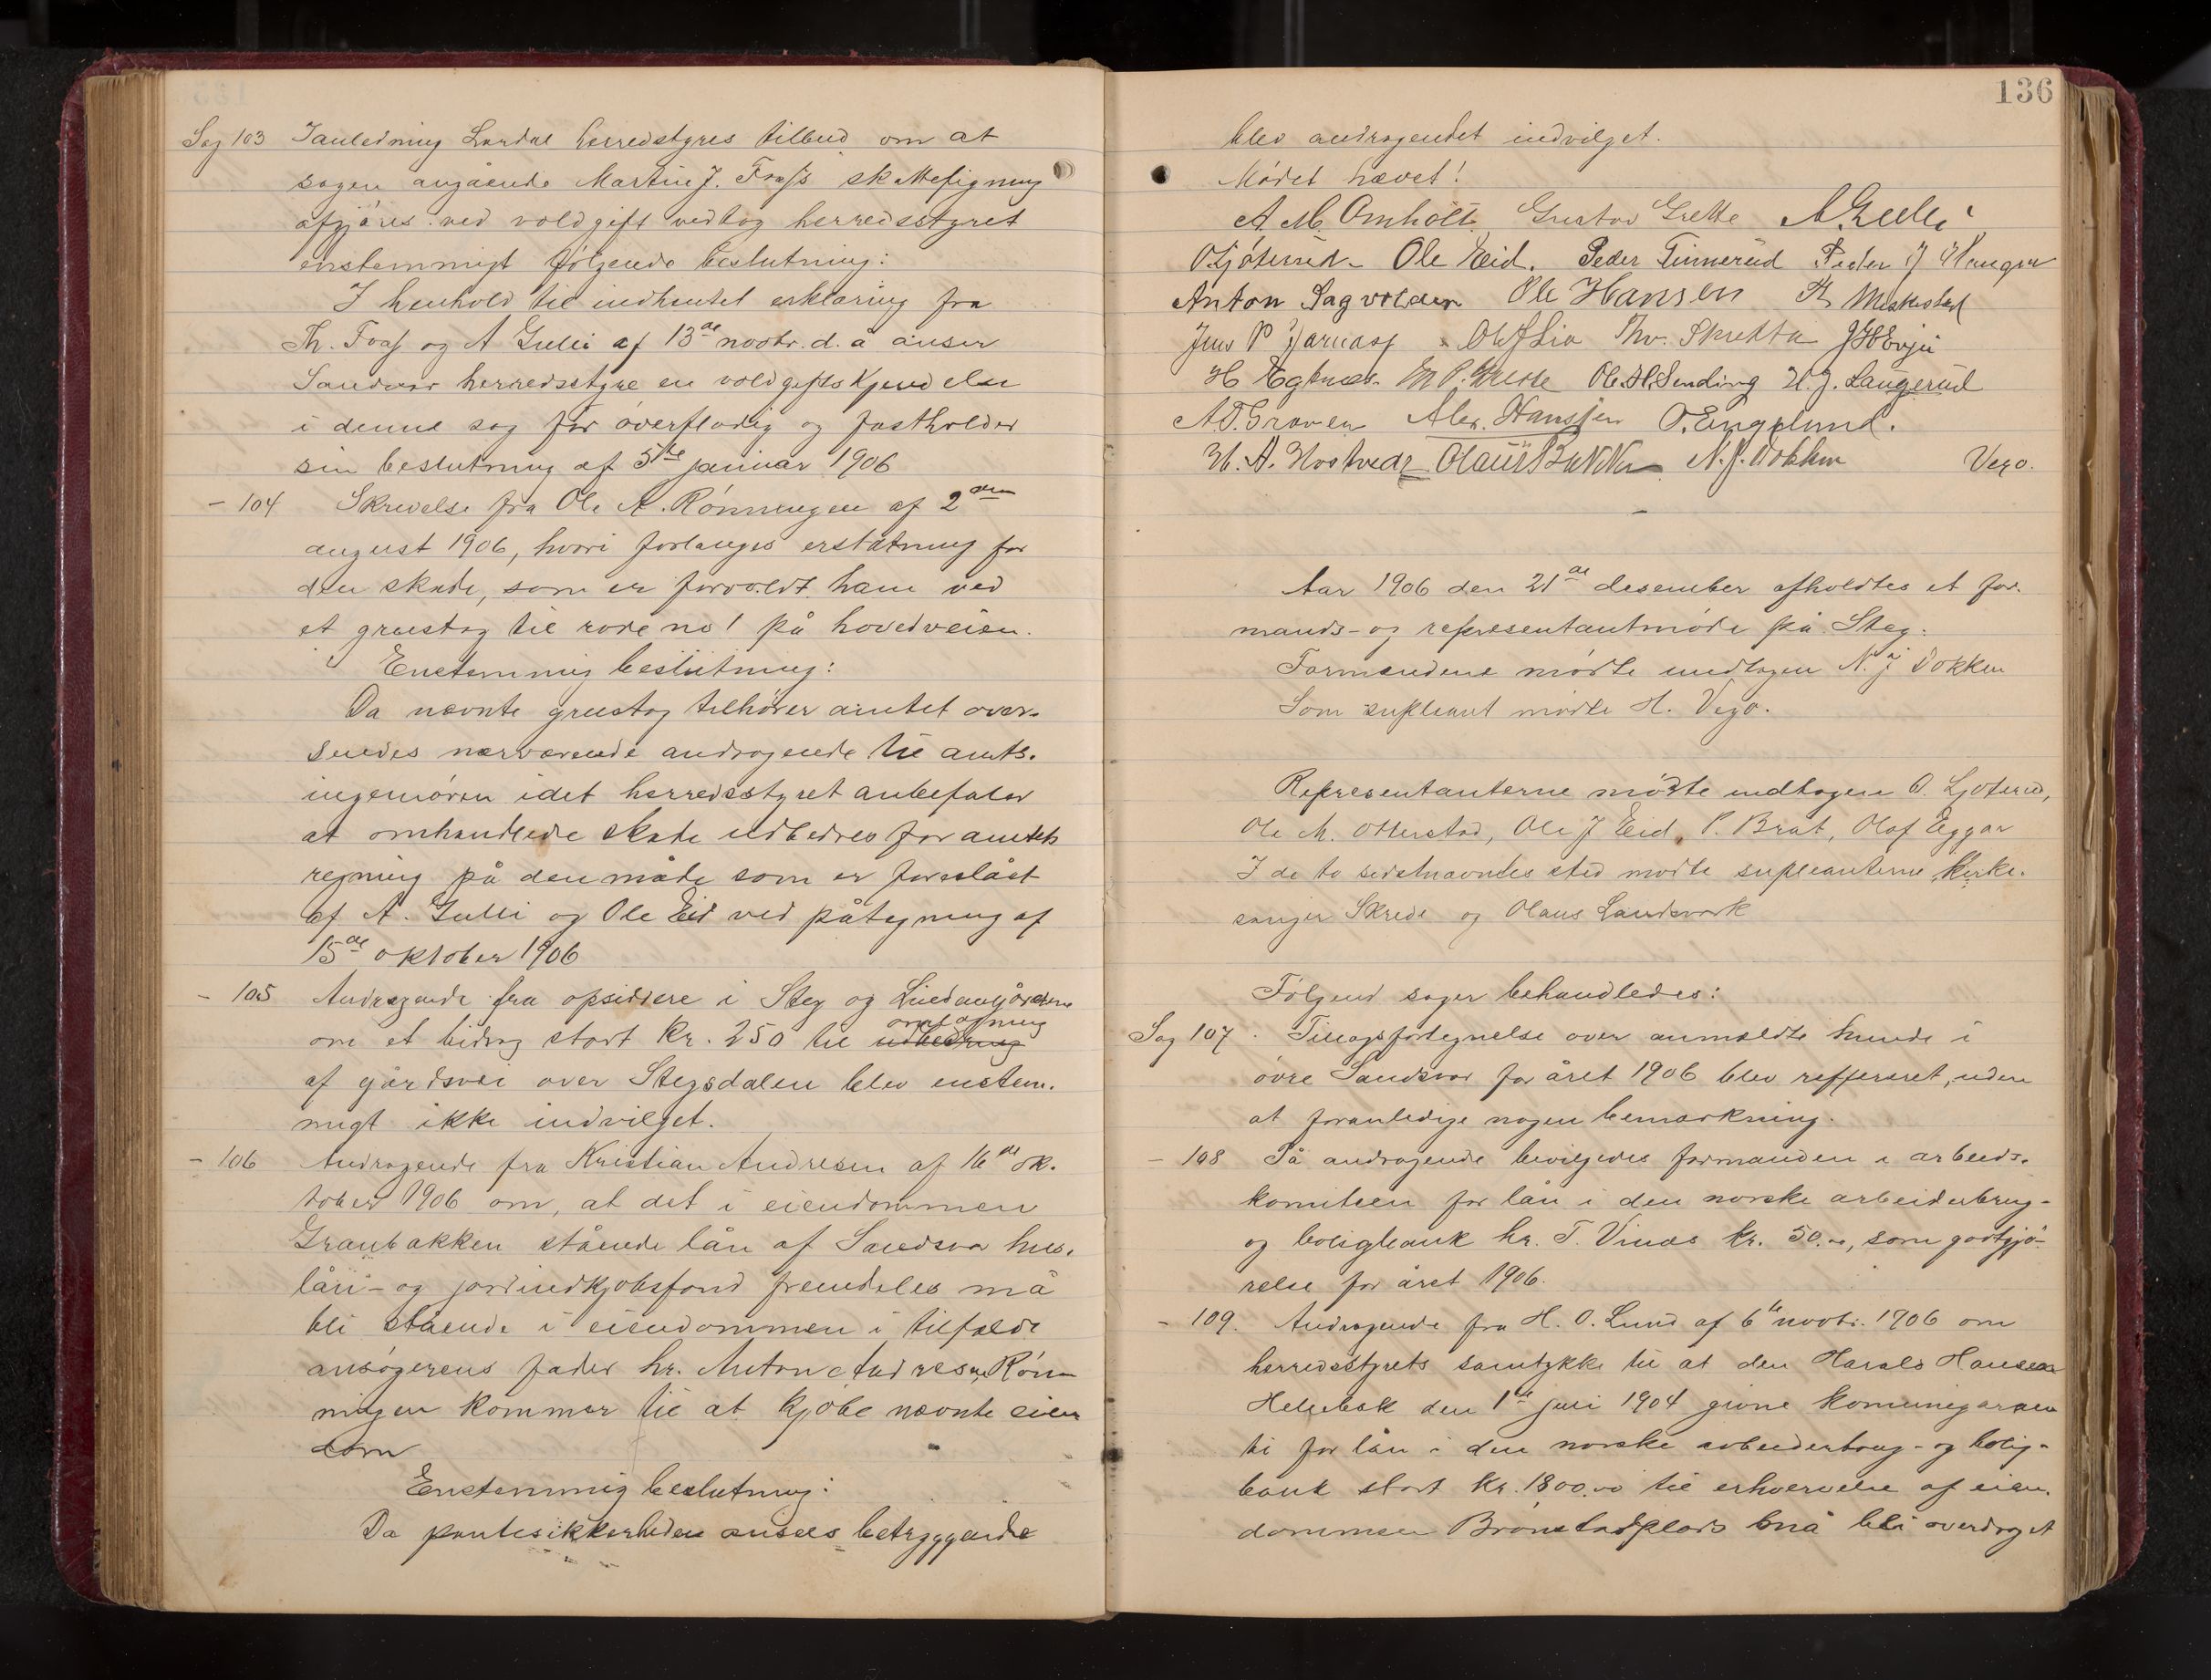 Sag 103 Ianledning Lardal herredstyres tilbud om at
sagen angaaende Martin J. Foss's skatteligning
afgjøres ved voldgift vedtog herredsstyret
enstemmigt følgende beslutning:
I henhold til indhentet erklæring fra
Th. Foss og A Gulli af 13de novbr. d. å anser
Sandsvær herredsstyre en voldgifts Kjendelse
i denne sag for overflødig og fastholder
sin beslutning af 5te januar 1906
- 104 Skrivelse fra Ole A. Rønningen af 2den
august 1906, hvori forlanges erstatning for
den skade, som er forvoldt ham ved
et grustag til rode no 1 på hovedveien.
Enstemmig beslutning:
Da nævnte grustag tilhører amtet over-
sendes nærværende andragende til amts.
ingeniøren idet herredsstyret anbefaler
at omhandlede skade udbedres for amtets
regning på den måde som er foreslået
af A. Gulli og Ole Eid ved påtegning af
15de oktober 1906
- 105 Andragende fra opsiddere i Steg og
omlægning
om et bidrag stort Kr. 250 til udbedring
af gårdsvei over Stegsdalen blev enstem.
migt ikke indvilget.
- 106 Andragende fra Kristian Andresen af 16de ok.
tober 1906 om, at det i eiendommen
Granbakken stående lån af Sandsvær hus.
lån- og jordindkjøbsfond fremdeles må
bli stående i eiendommen i tilfælde
ansøgerens fader hr. Anton Andresen Røn-
ningen kommer til at kjøbe nævnte eien
dom
Enstemmig beslutning:
Da pantesikkerheden ansees betryggende
136
blev andragendet indvilget.
Mødet hævet!
A. M. Omholt. Gustav Grette A Gulli
O Ljøterud Ole Eid. Peder Tinnerud Peder J Haugen
Anton Sagvolden Ole Hansen
Jens P Ole J Lia Thv. Skretta J H Evju
H Ole H. Sending H. J. Laugerud
A T. Graven Alex. Hanssen O. Englund.
H. A. Hostvedt Olaus Bakken N. J. Dokken Vego.
Aar 1906 den 21de desember afholdtes et for.
mands- og representantmøde på Steg.
Formændene mødte undtagen N. J Dokken
Som supleant mødte H. Vego.
Representanterne mødte undtagen O. Ljøterud,
Ole M. Otterstad, Ole J Eid, P. Bråt, Olaf Eggar
I de to sidstnævntes sted mødte supleanterne kirke.
sanger Skrede og Olaus Landsverk
Følgend sager behandledes:
Sag 107. Tillægsfortegnelse over anmeldte hunde i
øvre Sandsvær for året 1906 blev reffereret, uden
at foranledige nogen bemærkning.
- 108 På andragende bevilgedes formanden i arbeids.
komiteen for lån i den norske arbeiderbrug-
og boligbank hr. T. Vinæs kr. 50.00, som godtgjø-
relse for året 1906.
- 109. Andragende fra H. O. Lund af 6te novbr. 1906 om
herredsstyrets samtykke til at den Harald Hansen
den 1ste juni 1904 givne komunegaran
ti for lån i den norske arbeiderbrug- og bolig-
bank stort Kr. 1800.00 til erhvervelse af eien.
dommen Brønstadplads må bli overdraget